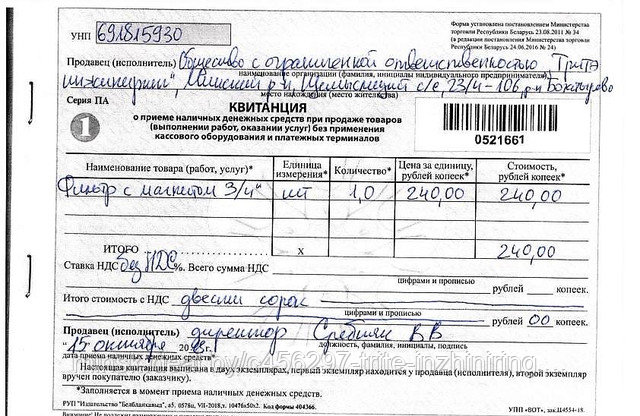 УНП 691815930
Форма установлена постановлением Министерства
торговли Республики Беларусь 23.08.2011 № 34
(в редакции постановления Министерства торговли
Республики Беларусь 24.06.2016 № 24)
Продавец (исполнитель) Общество с ограниченной ответственностью "Трите
наименование организации (фамилия, инициалы индивидуального предпринимателя)
инжиниринг", Минский р-н, Щомыслицкий с/с, 23/4-106, р-н Богатырево
место нахождения (место жительства)
Серия ПА
КВИТАНЦИЯ
о приеме наличных денежных средств при продаже товаров
(выполнении работ, оказании услуг) без применения
кассового оборудования и платежных терминалов
1
0521661
Наименование товара (работ, услуг)* Единица измерения* Количество* Цена за единицу, рублей копеек* Стоимость, рублей копеек*
Фильтр с магнитом 3/4" шт 1,0 240,00 240,00
ИТОГО x 240,00
Ставка НДС без НДС %. Всего сумма НДС
цифрами и прописью
рублей копеек.
Итого стоимость с НДС двести сорок
цифрами и прописью
рублей 00 копеек.
Продавец (исполнитель) директор Сребняк В В
должность, фамилия, инициалы, подпись
"15 октября 20 г.
дата приема наличных денежных средств*
minsk.deal.by/c456297-trite-inzhiniring
Настоящая квитанция выдана в двух экземплярах, первый экземпляр находится у продавца (исполнителя), второй экземпляр
вручен покупателю (заказчику).
*Заполняется в момент приема наличных денежных средств.
РУП "Издательство "Белбланкавыд", з. 0578и, VII-2018.г. 10476х50х2. Код формы 404366.
УПП «ВОТ».